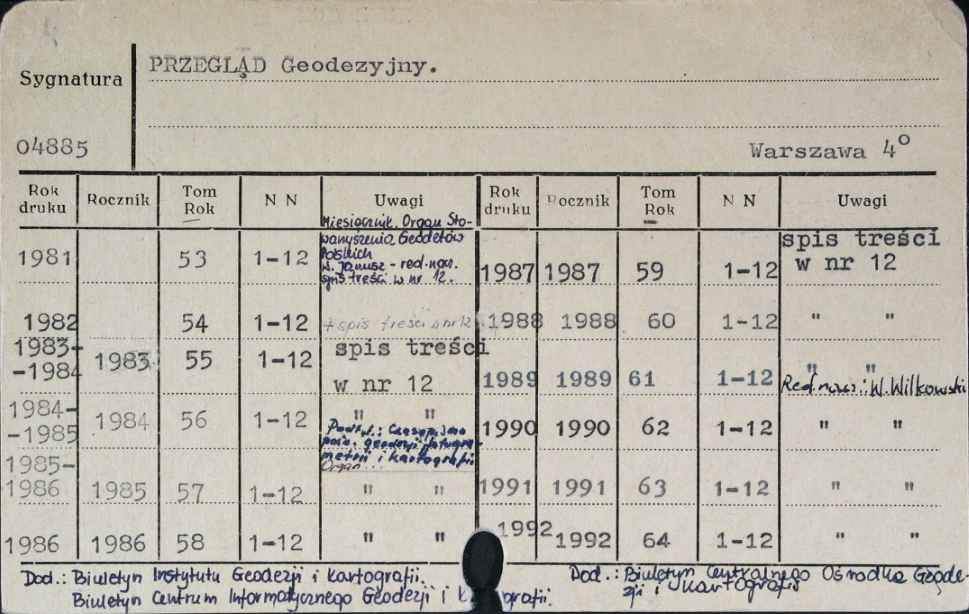 PRZEGLĄD Geodezyjny.
Sygnatura
04885
Warszawa 4°
Rok druku Rocznik Tom Rok N N Uwagi Rok druku Rocznik Tom Rok N N Uwagi
Miesięcznik. Organ Sto-
warzyszenia Geodetów
Polskich
W. Janusz - red. nacz.
spis treści w nr 12.
1981 53 1-12
1987 1987 59 1-12 spis treści
w nr 12
1982 54 1-12 + spis treści w nr 12
1988 1988 60 1-12 " "
1983-
-1984 1983 55 1-12 spis treści
w nr 12
1989 1989 61 1-12 " "
Red. nacz.: W. Wilkowski
1984-
-1985 1984 56 1-12 " "
Podtyt.: Czasopismo
pośw. geodezji, fotogra-
metrii i kartografii
Organ...
1990 1990 62 1-12 " "
1985-
1986 1985 57 1-12 " "
1991 1991 63 1-12 " "
1986 1986 58 1-12 " "
1992 1992 64 1-12 " "
Dod.: Biuletyn Instytutu Geodezji i Kartografii.
Biuletyn Centrum Informatycznego Geodezji i
Dod.: Biuletyn Centralnego Ośrodka Geode-
zji i Kartografii